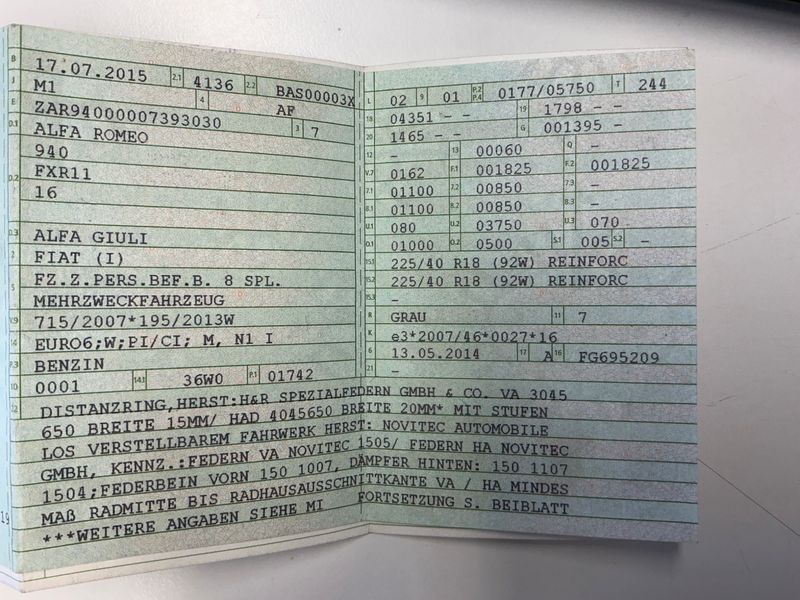 B 17.07.2015 2.1 4136 2.2 BAS00003X
J M1 4 AF
E ZAR94000007393030 3 7
D.1 ALFA ROMEO
940
D.2 FXR11
16
D.3 ALFA GIULI
2 FIAT (I)
5 FZ.Z.PERS.BEF.B. 8 SPL.
MEHRZWECKFAHRZEUG
V.9 715/2007*195/2013W
14 EURO6;W;PI/CI; M, N1 I
P.3 BENZIN
10 0001 14.1 36W0 P.1 01742
L 02 9 01 P.2 P.4 0177/05750 T 244
18 04351 - - 19 1798 - -
20 1465 - - G 001395 -
12 - 13 00060 Q -
V.7 0162 F.1 001825 F.2 001825
7.1 01100 7.2 00850 7.3 -
8.1 01100 8.2 00850 8.3 -
U.1 080 U.2 03750 U.3 070
O.1 01000 O.2 0500 S.1 005 S.2 -
15.1 225/40 R18 (92W) REINFORC
15.2 225/40 R18 (92W) REINFORC
15.3 -
R GRAU 11 7
K e3*2007/46*0027*16
6 13.05.2014 17 A 16 FG695209
21 -
22 DISTANZRING,HERST:H&R SPEZIALFEDERN GMBH & CO. VA 3045
650 BREITE 15MM/ HAD 4045650 BREITE 20MM* MIT STUFEN
LOS VERSTELLBAREM FAHRWERK HERST: NOVITEC AUTOMOBILE
GMBH, KENNZ.:FEDERN VA NOVITEC 1505/ FEDERN HA NOVITEC
1504;FEDERBEIN VORN 150 1007, DÄMPFER HINTEN: 150 1107
MAß RADMITTE BIS RADHAUSAUSSCHNITTKANTE VA / HA MINDES
***WEITERE ANGABEN SIEHE MI FORTSETZUNG S. BEIBLATT